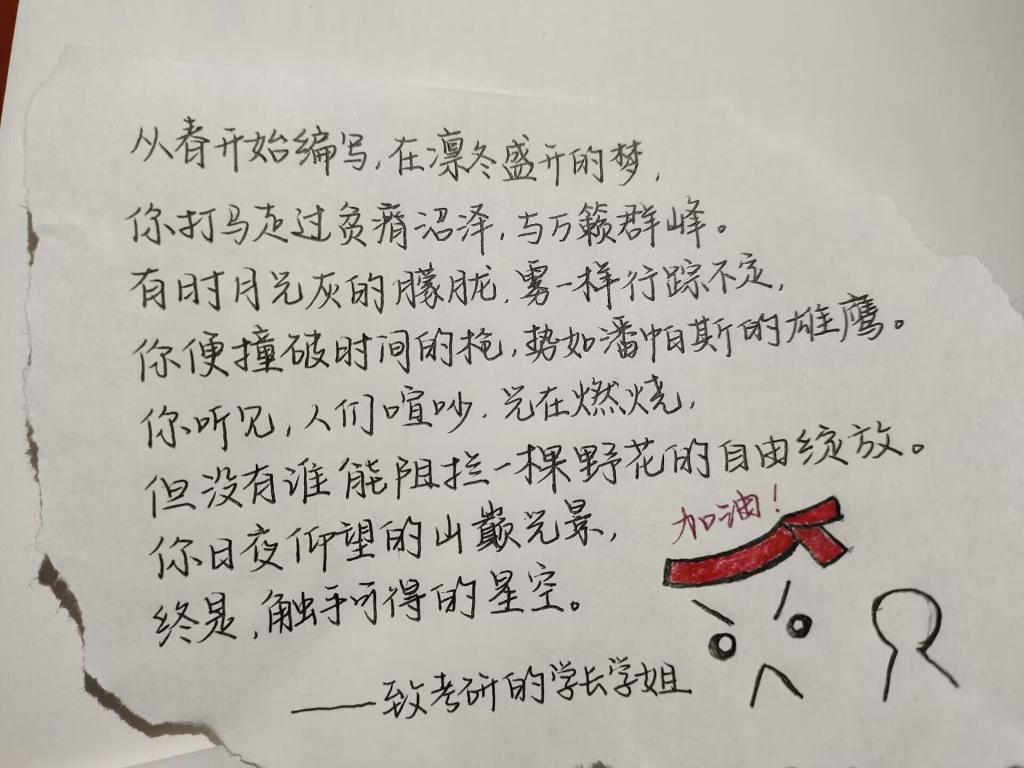 从春开始编写,在凛冬盛开的梦,
你打马走过贫瘠沼泽,与万籁群峰。
有时月光灰的朦胧,雾一样行踪不定,
你便撞破时间的枪,势如潘帕斯的雄鹰。
你听见,人们喧吵.光在燃烧,
但没有谁能阻拦一棵野花的自由绽放。
你日夜仰望的山巅光景,
终是,触手可得的星空。
——致考研的学长学姐
加油!